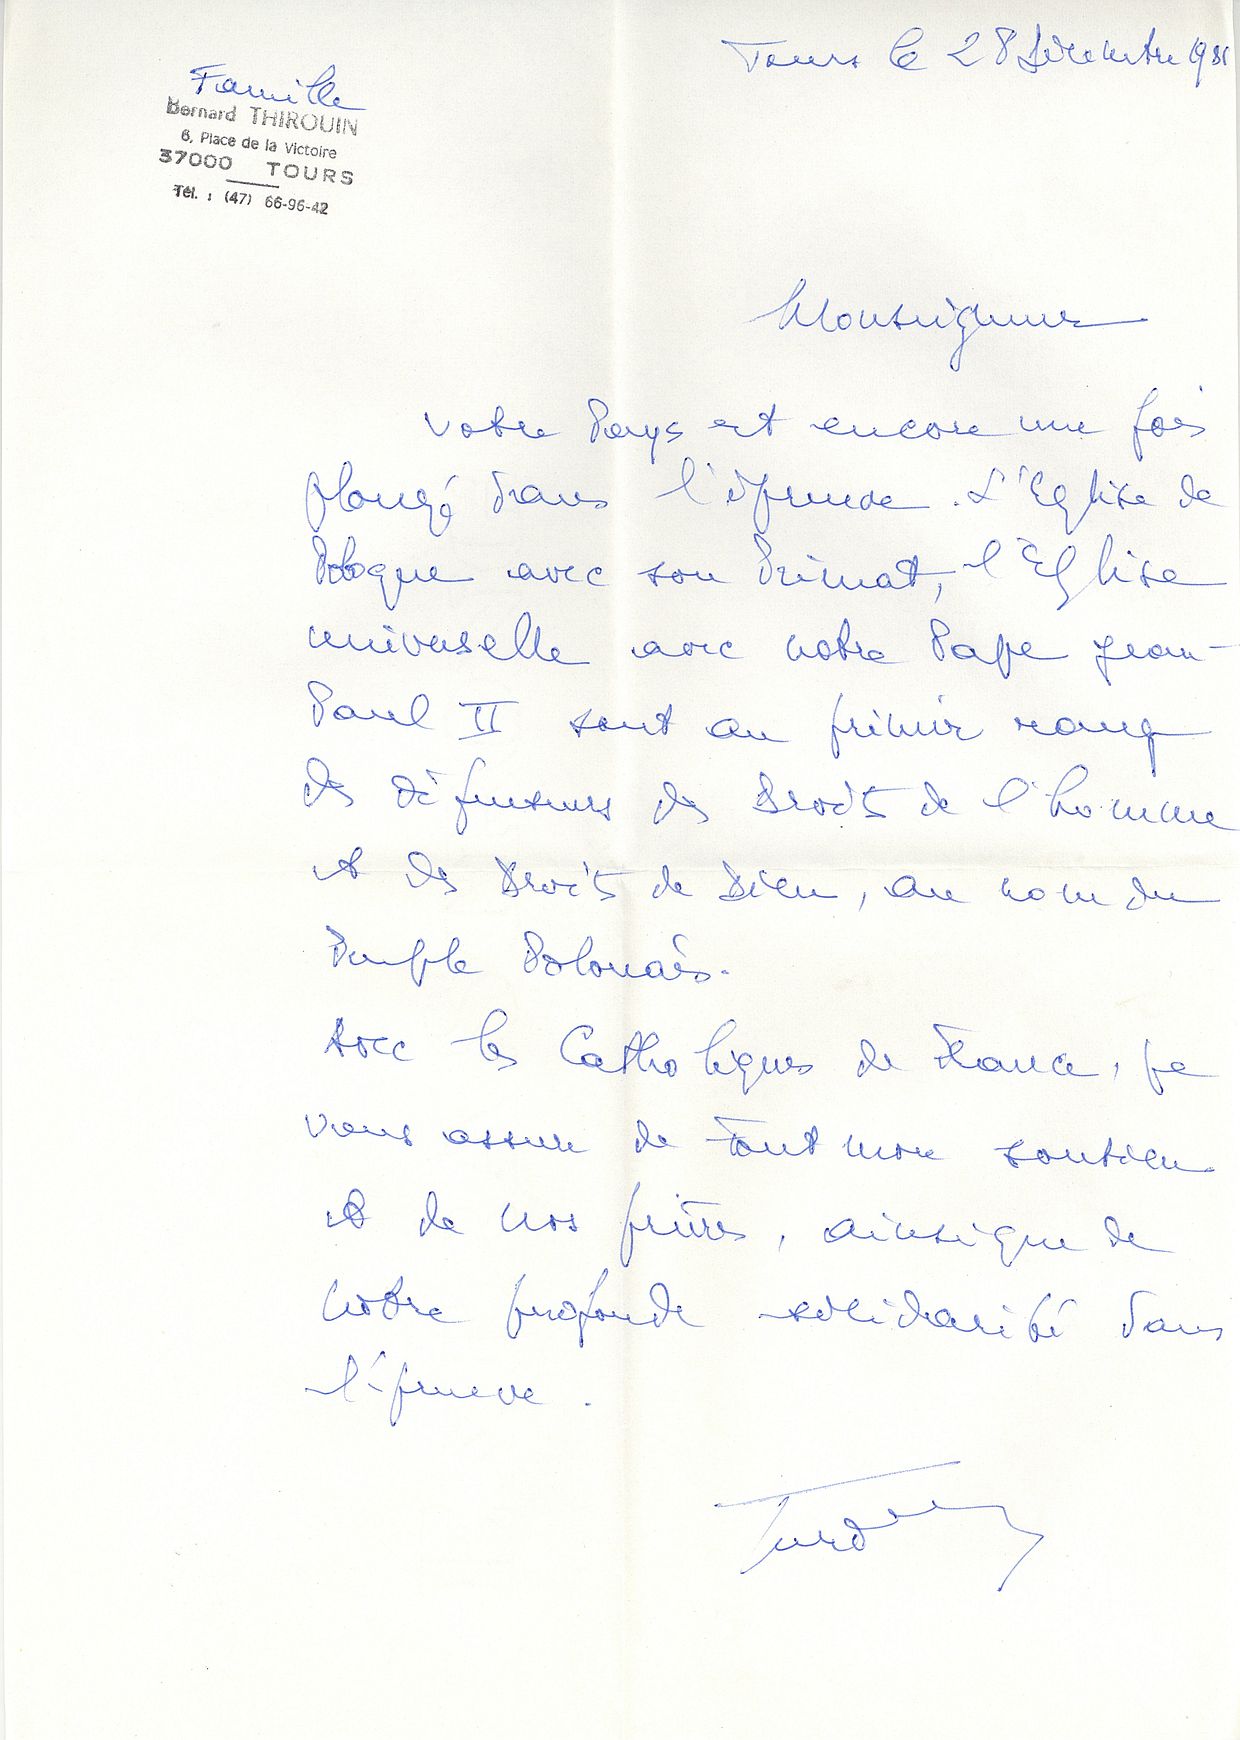 Tours le 28 Décembre 1981
Famille
Bernard THIROUIN
6, Place de la Victoire
37000 TOURS
Tél. : (47) 66-96-42
Monseigneur
Votre Pays est encore une fois
plongé dans l'épreuve. L'Eglise de
Pologne avec son Primat, l'Eglise
universelle avec notre Pape Jean-
Paul II sont au premier rang
des défenseurs des Droits de l'homme
et des Droits de Dieu, au nom du
Peuple Polonais.
Avec les Catholiques de France, je
vous assure de tout mon soutien
et de nos prières, ainsi que de
notre profonde solidarité dans
l'épreuve.